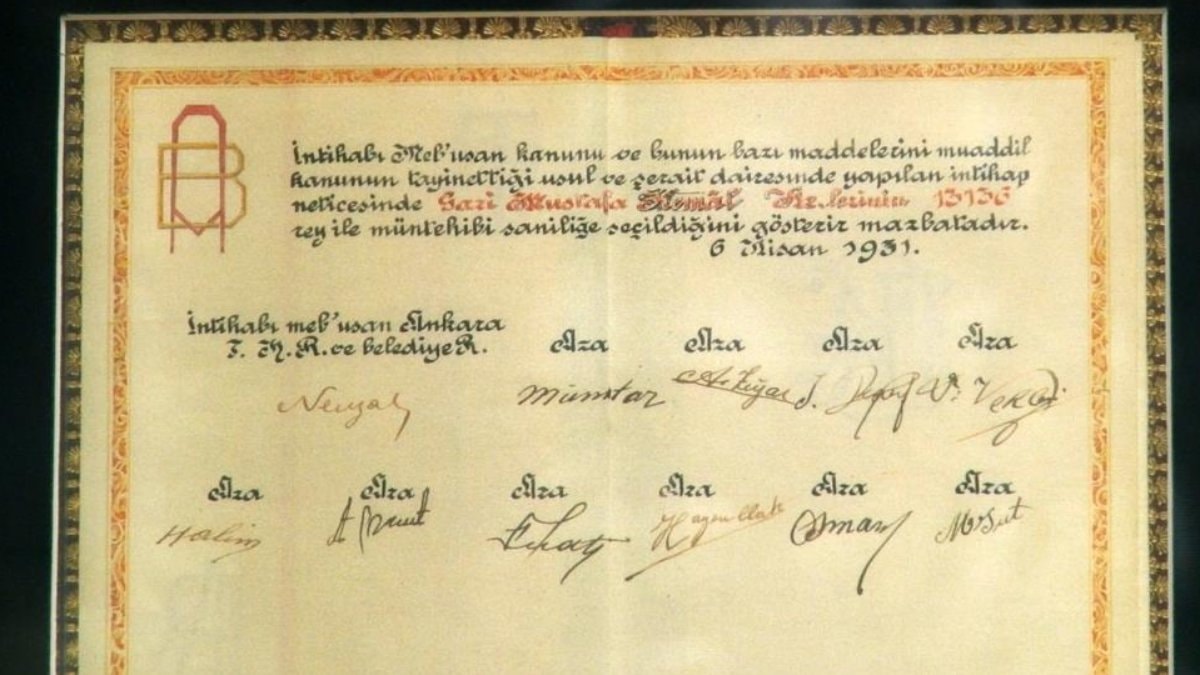 AB
İntihabı Meb'usan kanunu ve bunun bazı maddelerini muaddil
kanunun tayinettiği usul ve şerait dairesinde yapılan intihap
neticesinde Gazi Mustafa Kemâl Hz.lerinin 13136
rey ile müntehibi saniliğe seçildiğini gösterir mazbatadır.
6 Nisan 1931.
İntihabı meb'usan Ankara
T. H. R. ve belediye R.
Aza Aza Aza Aza
Mümtaz
Aza Aza Aza Aza Aza Aza
Halim
Hayrullah Osman Mesut